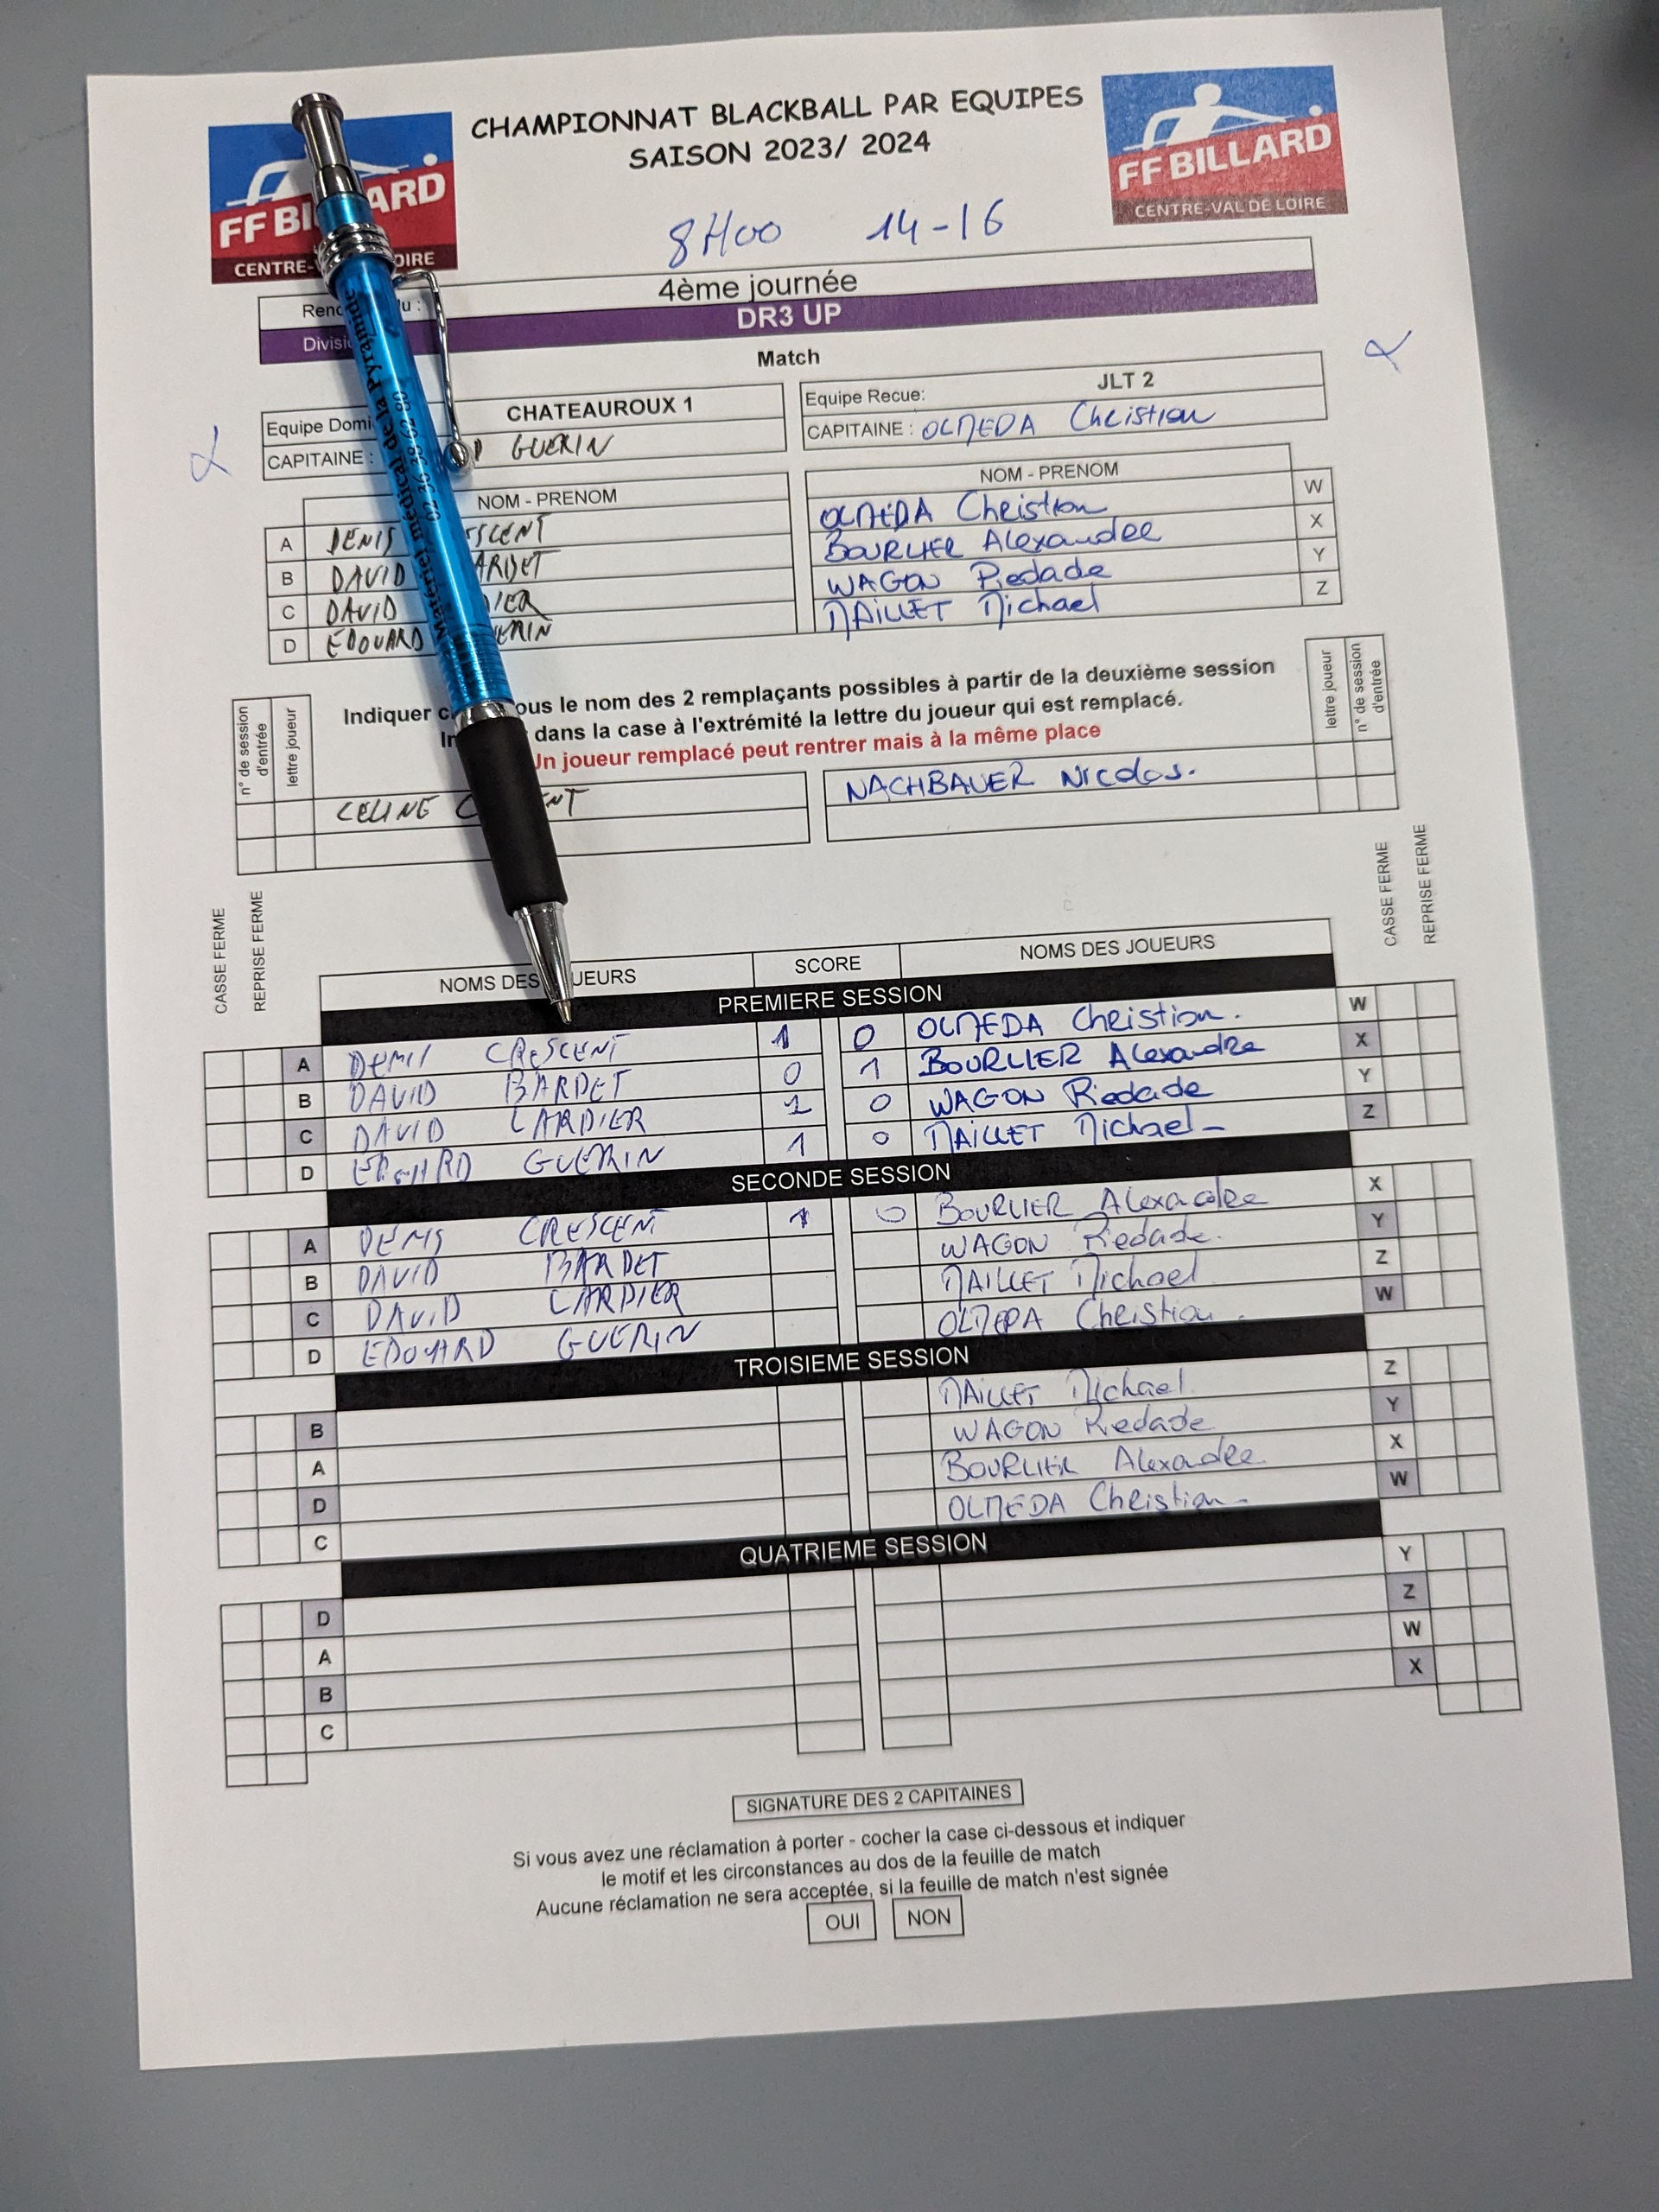 CHAMPIONNAT BLACKBALL PAR EQUIPES
SAISON 2023/ 2024
FF BI ARD
CENTRE- OIRE
FF BILLARD
CENTRE-VAL DE LOIRE
8H00 14-16
4ème journée
DR3 UP
Match
CHATEAUROUX 1
GUERIN
CAPITAINE :
Equipe Recue: JLT 2
CAPITAINE : OLMEDA Christian
Matériel médical de la Pyramide
02 36 38 62 80
NOM - PRENOM
A DENIS SCENT
B DAVID ARDET
C DAVID DIER
D EDOUARD ERIN
NOM - PRENOM
OLMEDA Christian W
BOURLIER Alexandre X
WAGON Redade Y
MAILLET Michael Z
Indiquer ous le nom des 2 remplaçants possibles à partir de la deuxième session
dans la case à l'extrémité la lettre du joueur qui est remplacé.
Un joueur remplacé peut rentrer mais à la même place
n° de session d'entrée
lettre joueur
lettre joueur
n° de session d'entrée
CELINE C NT
NACHBAUER Nicolas.
CASSE FERME
REPRISE FERME
CASSE FERME
REPRISE FERME
NOMS DES JOUEURS SCORE NOMS DES JOUEURS
PREMIERE SESSION
A DENIS CRESCENT 1 0 OLMEDA Christian. W
B DAVID BARDET 0 1 BOURLIER Alexandre X
C DAVID LARDIER 1 0 WAGON Redade Y
D EDOUARD GUERIN 1 0 MAILLET Michael Z
SECONDE SESSION
A DENIS CRESCENT 1 0 BOURLIER Alexandre X
B DAVID BARDET WAGON Redade. Y
C DAVID LARDIER MAILLET Michael Z
D EDOUARD GUERIN OLMEDA Christian. W
TROISIEME SESSION
B MAILLET Michael Z
A WAGON Redade Y
D BOURLIER Alexandre X
C OLMEDA Christian W
QUATRIEME SESSION
D Y
A Z
B W
C X
SIGNATURE DES 2 CAPITAINES
Si vous avez une réclamation à porter - cocher la case ci-dessous et indiquer
le motif et les circonstances au dos de la feuille de match
Aucune réclamation ne sera acceptée, si la feuille de match n'est signée
OUI NON